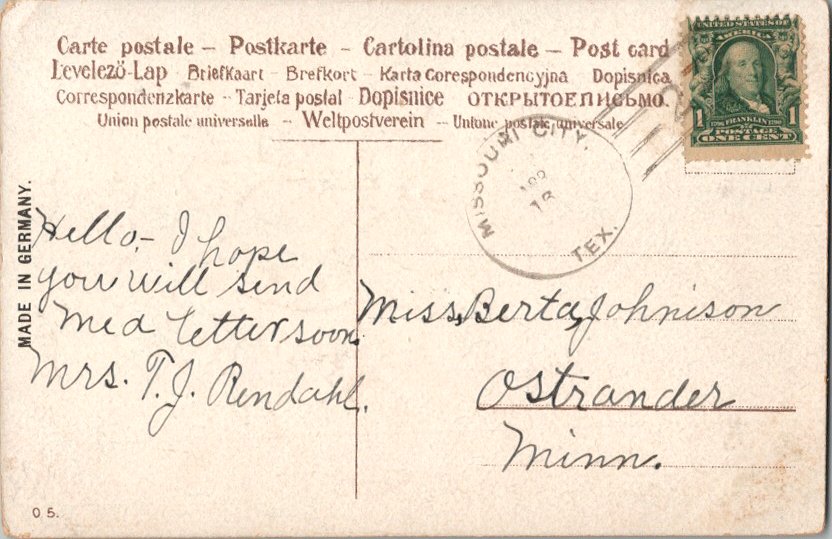 Carte postale – Postkarte – Cartolina postale – Post card
Levelező-Lap Briefkaart – Brefkort – Karta Corespondencyjna Dopisnica
Correspondenzkarte – Tarjeta postal Dopisnice ОТКРЫТОЕПИСЬМО.
Union postale universelle – Weltpostverein – Unione postale universale
UNITED STATES OF
AMERICA
1790 FRANKLIN 1790
1 1
POSTAGE
ONE CENT
MISSOURI CITY,
APR
18
TEX.
2
MADE IN GERMANY.
Hello,– I hope
you will send
me a letter soon.
Mrs. T. J. Rendahl.
Miss, Berta, Johnison
Ostrander
Minn.
05.